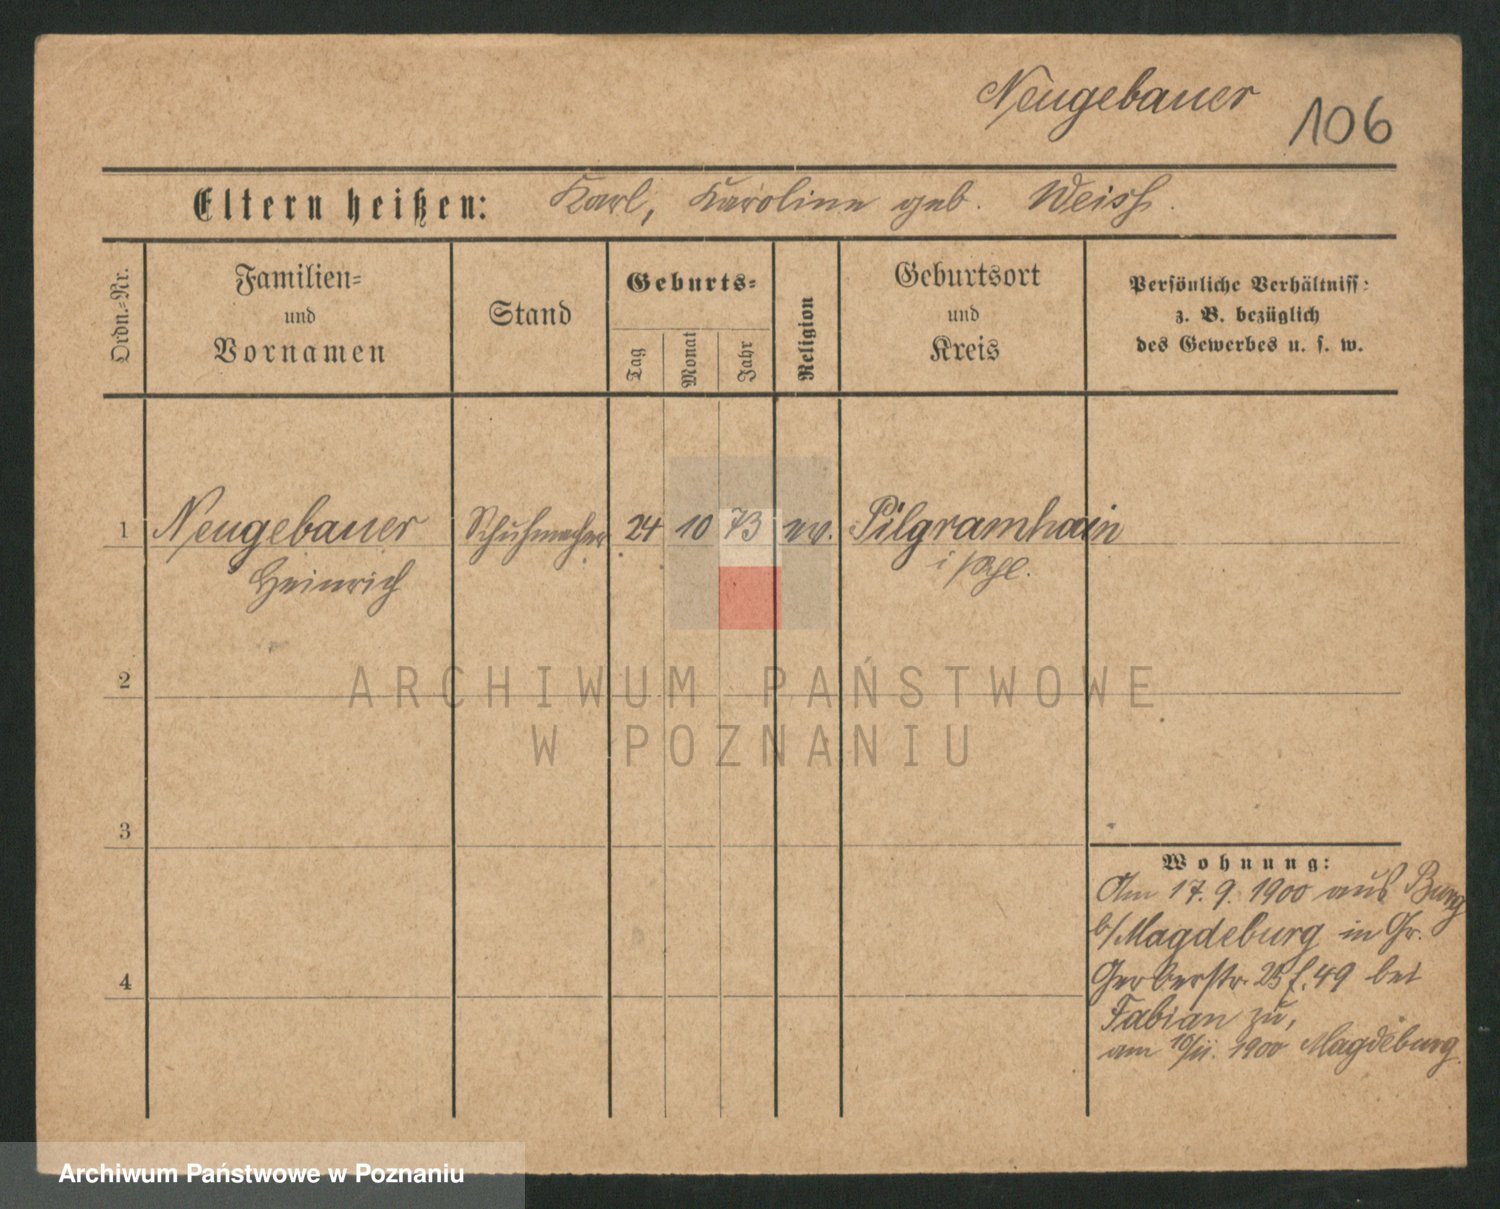 Neugebauer 106
Eltern heißen: Karl, Karoline geb. Weish.
Ordn.-Nr.
Familien- und Vornamen
Stand
Geburts-
Tag
Monat
Jahr
Religion
Geburtsort und Kreis
Persönliche Verhältniss:
z. B. bezüglich
des Gewerbes u. s. w.
1 Neugebauer Schuhmacher 24 10 73 ev. Pilgramshain
Heinrich i/Schl.
2
ARCHIWUM PAŃSTWOWE
W POZNANIU
3
Wohnung:
Am 17. 9. 1900 aus Burg
b/Magdeburg in Gr.
Gerberstr. 49 bei
Fabian zu,
am 16/11. 1900 Magdeburg
4
Archiwum Państwowe w Poznaniu